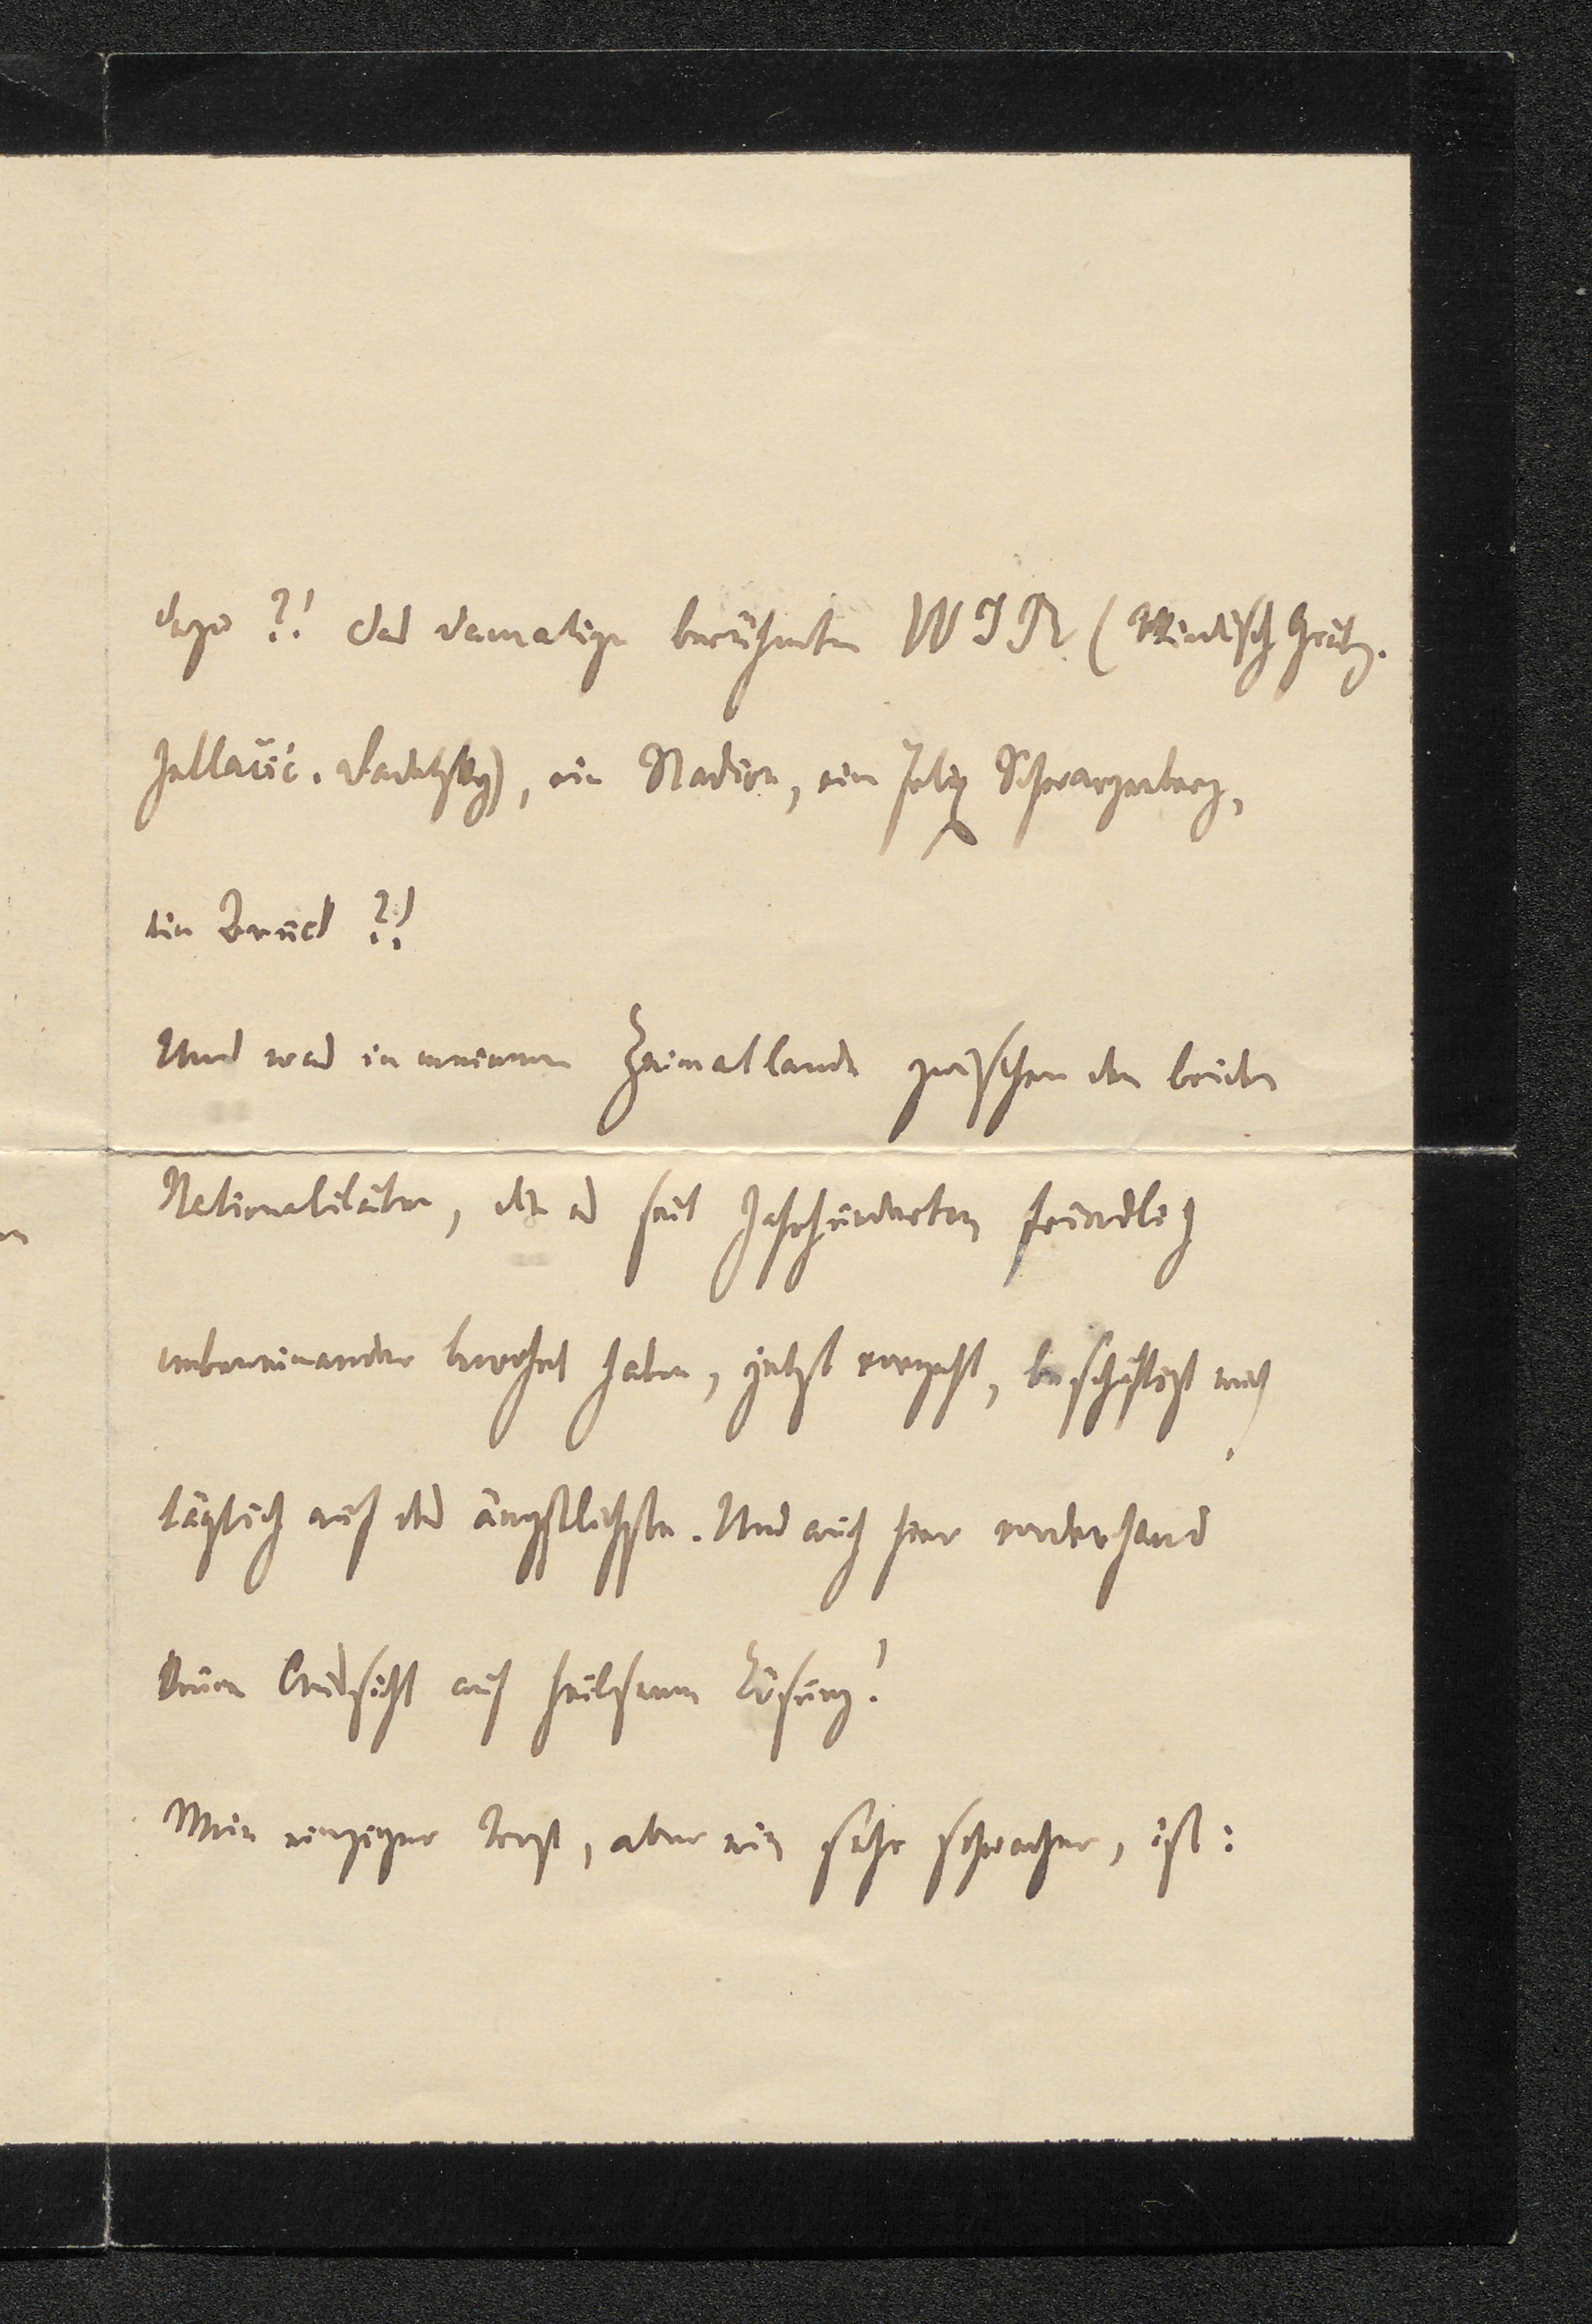 dazu ?! das damalige berühmte WIR (Windisch Grätz.
Jellačić. Radetzky), ein Stadion, ein Felix Schwarzenberg,
ein Bruck ?!
Und was in meinem Heimatlande zwischen den beiden
Nationalitäten, die es seit Jahrhunderten friedlich
nebeneinander bewohnt haben, jetzt vorgeht, beschäftigt mich
täglich auf das ängstlichste. Und auch hier vorderhand
keine Aussicht auf heilsame Lösung!
Mein einziger Trost, aber ein sehr schwacher, ist: